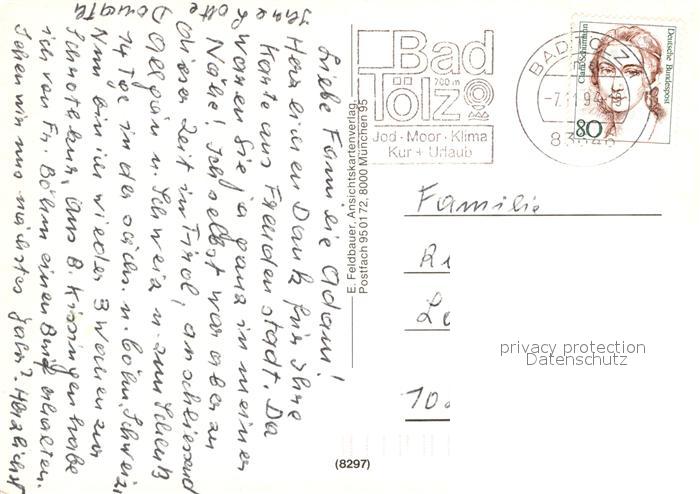 Liebe Familie Adam!
Herzlichen Dank für Ihre
Karte aus Freudenstadt. Da
waren Sie ja ganz in meiner
Nähe! Ich selbst war aber zu
dieser Zeit in Tirol, anschliessend
Allgäu u. Schweiz u. zum Schluß
14 Tge in der sächs. u. böhm. Schweiz.
Nun bin ich wieder 3 Wochen zur
Schrothkur. Aus B. Kissingen habe
ich von Fr. Böhm einen Brief erhalten.
Sehen wir uns nächstes Jahr? Herzlichst
Ihre
Lotte
Bad
Tölz
700 m
Jod · Moor · Klima
Kur + Urlaub
BAD TÖLZ
-7.11.94
83646
Deutsche Bundespost
Clara Schumann
80
E. Feldbauer, Ansichtskartenverlag,
Postfach 95 01 72, 8000 München 95
Familie
10
privacy protection
Datenschutz
(8297)